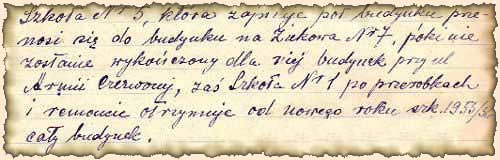 Szkoła Nr 5, która zajmuje pół budynku prze-
nosi się do budynku na Żukowa Nr 7, póki nie
zostanie wykończony dla niej budynek przy ul
Armii Czerwonej, zaś Szkoła Nr 1 po przeróbkach
i remoncie otrzymuje od nowego roku szk. 1953/54
cały budynek.